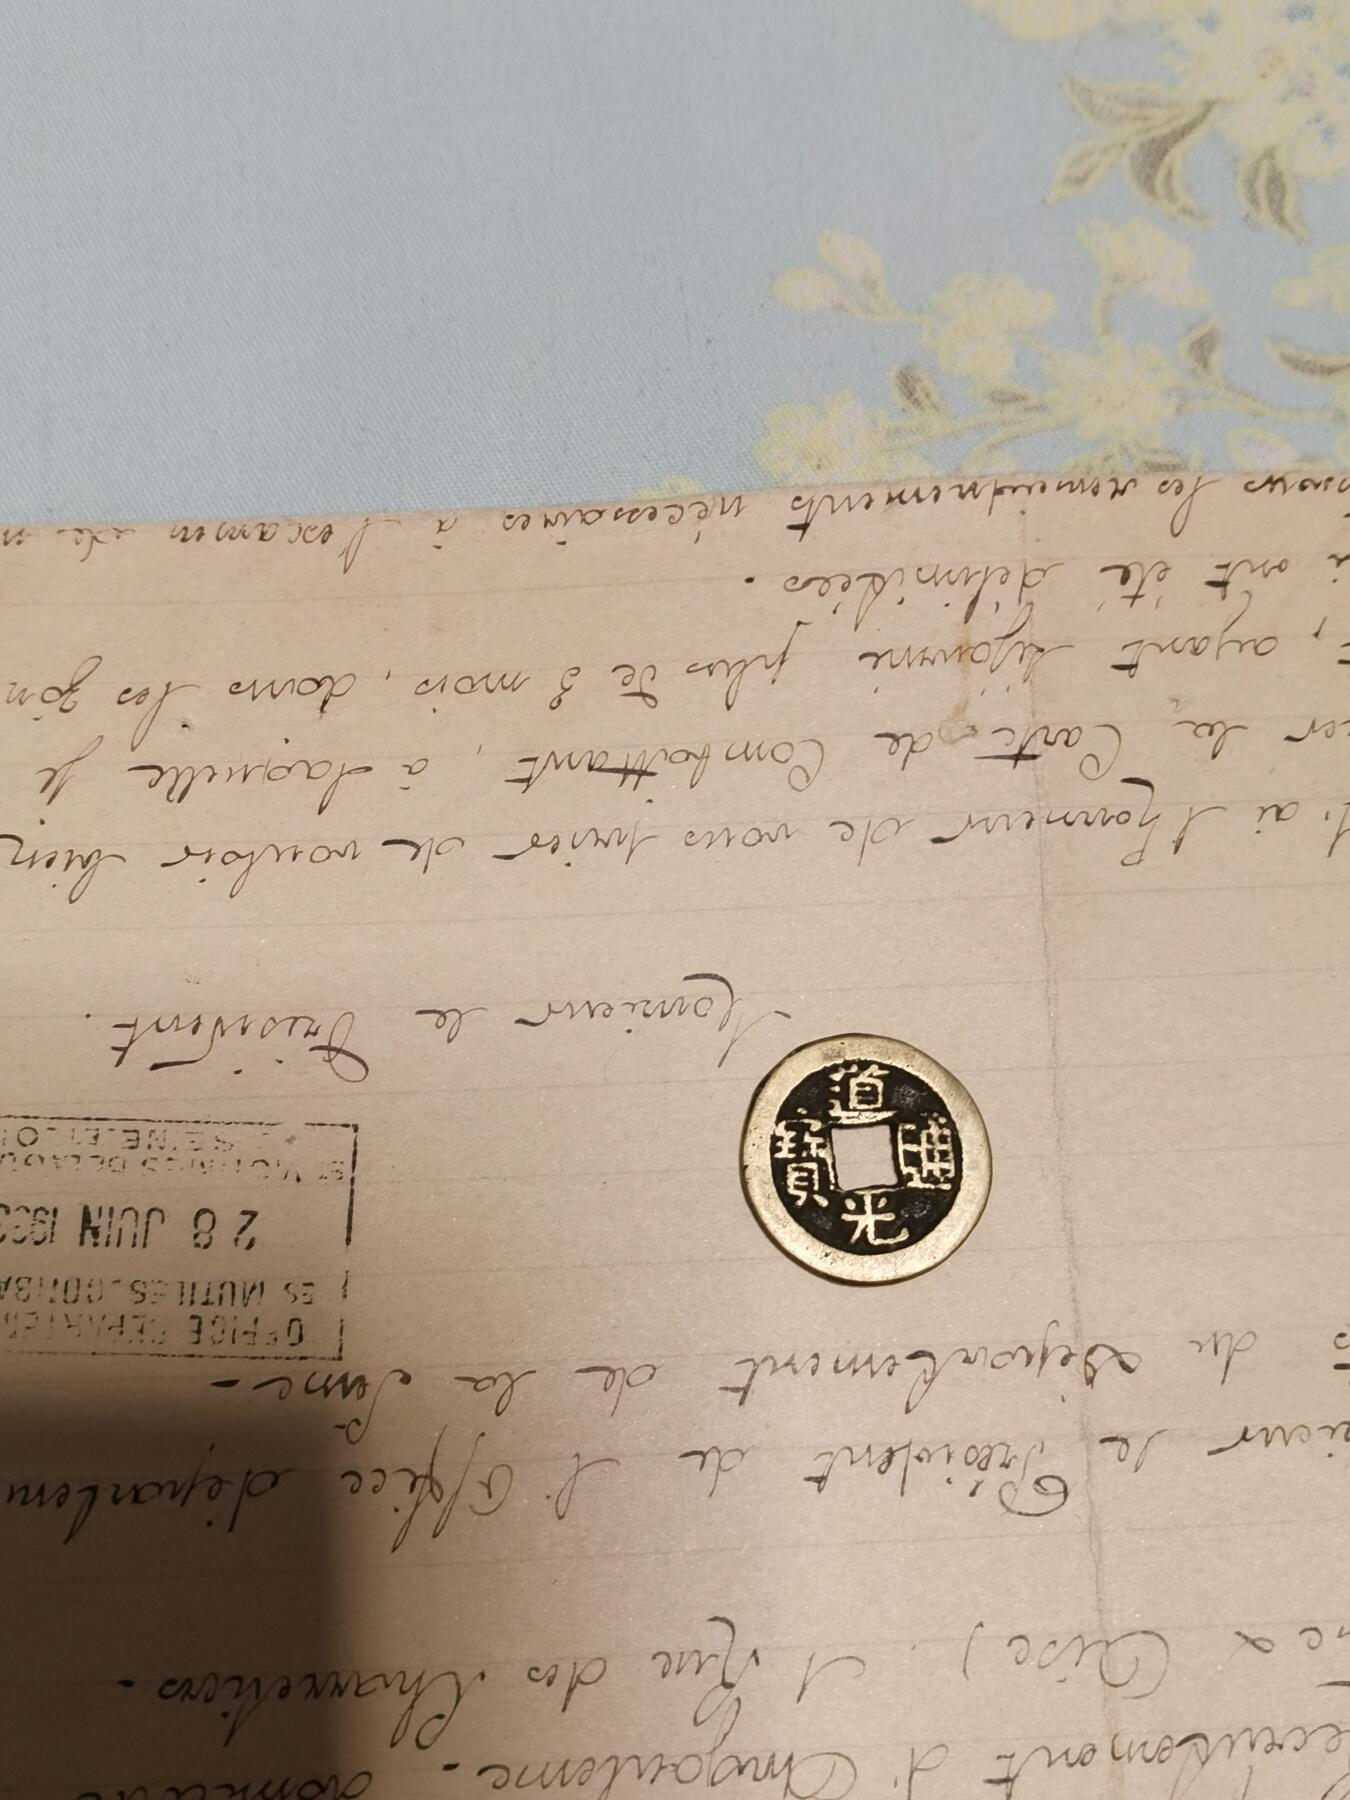 Recrutement d'Angoulême.
(Oise). 1 Rue des Charretiers.
le Président de l'Office
du Département de la Seine.
OFFICE DEPARTE
ES MUTILES. COMBA
28 JUIN 193
ET VICTIMES DE LA GU
道光通寶
Monsieur le Président.
J'ai l'honneur de vous prier de vouloir bien
la Carte de Combattant, à laquelle je
, ayant séjourné plus de 3 mois, dans les
ont été délimitées.
les renseignements nécessaires à l'examen de